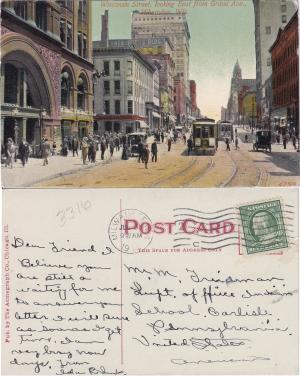 Wisconsin Street, looking East from Grand Ave.,
Milwaukee, Wis.
3316
MILWAUKEE
9 AM
POST CARD
THIS SPACE FOR ADDRESS ONLY
Pub. by The Acmegraph Co., Chicago, Ill.
Dear Friend, I
Believe you
are still a
waiting for me
to answer your
letter I will sure
as soon as I get
time. I am
very busy now
days. From
Mr. M. Friedman
Dept. of office Indian
School. Carlisle
Pennsylvania
United States
America